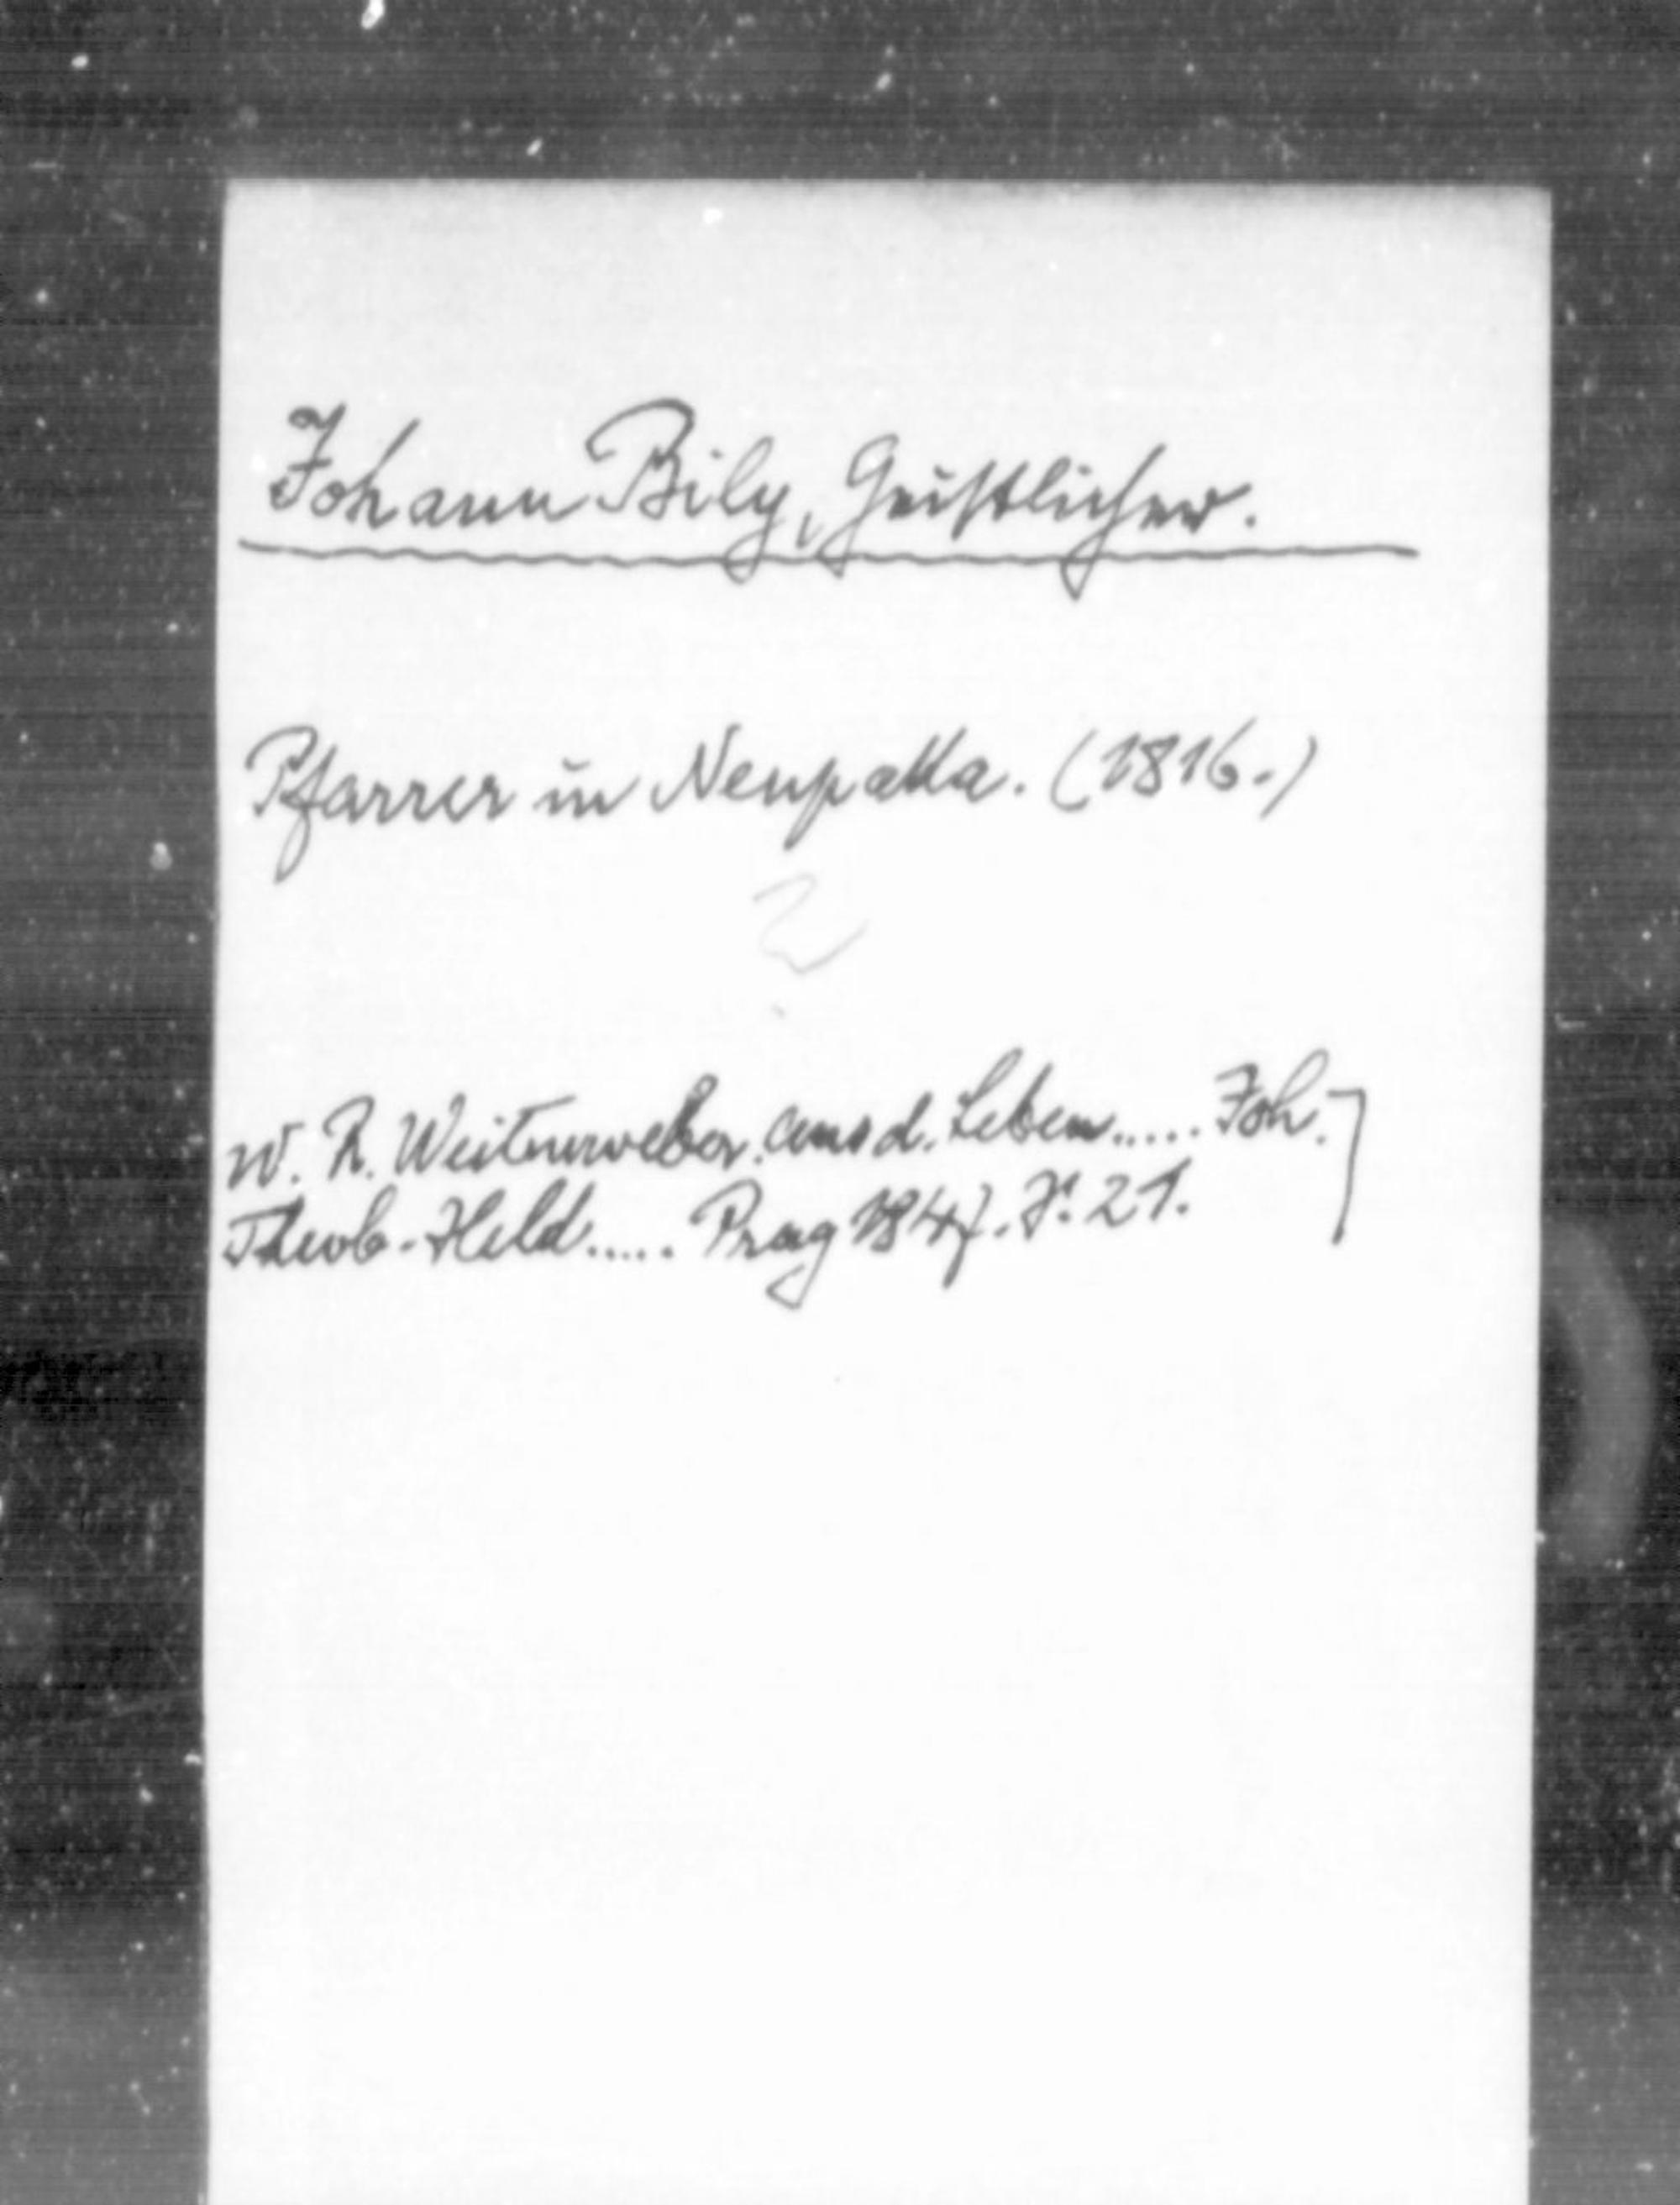 Johann Bily, Geistlicher.
Pfarrer in Neupakka. (1816.)
?
W. R. Weitenweber. Aus d. Leben..... Joh.
Theob. Held..... Prag 1847. S. 21.]